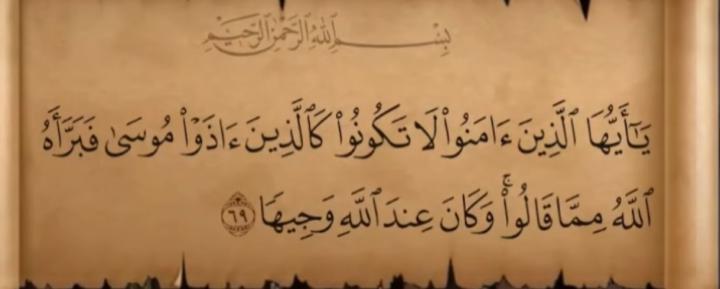 بِسْمِ ٱللَّهِ ٱلرَّحْمَٰنِ ٱلرَّحِيمِ
يَـٰٓأَيُّهَا ٱلَّذِينَ ءَامَنُوا۟ لَا تَكُونُوا۟ كَٱلَّذِينَ ءَاذَوْا۟ مُوسَىٰ فَبَرَّأَهُ
ٱللَّهُ مِمَّا قَالُوا۟ ۚ وَكَانَ عِندَ ٱللَّهِ وَجِيهًا ٦٩